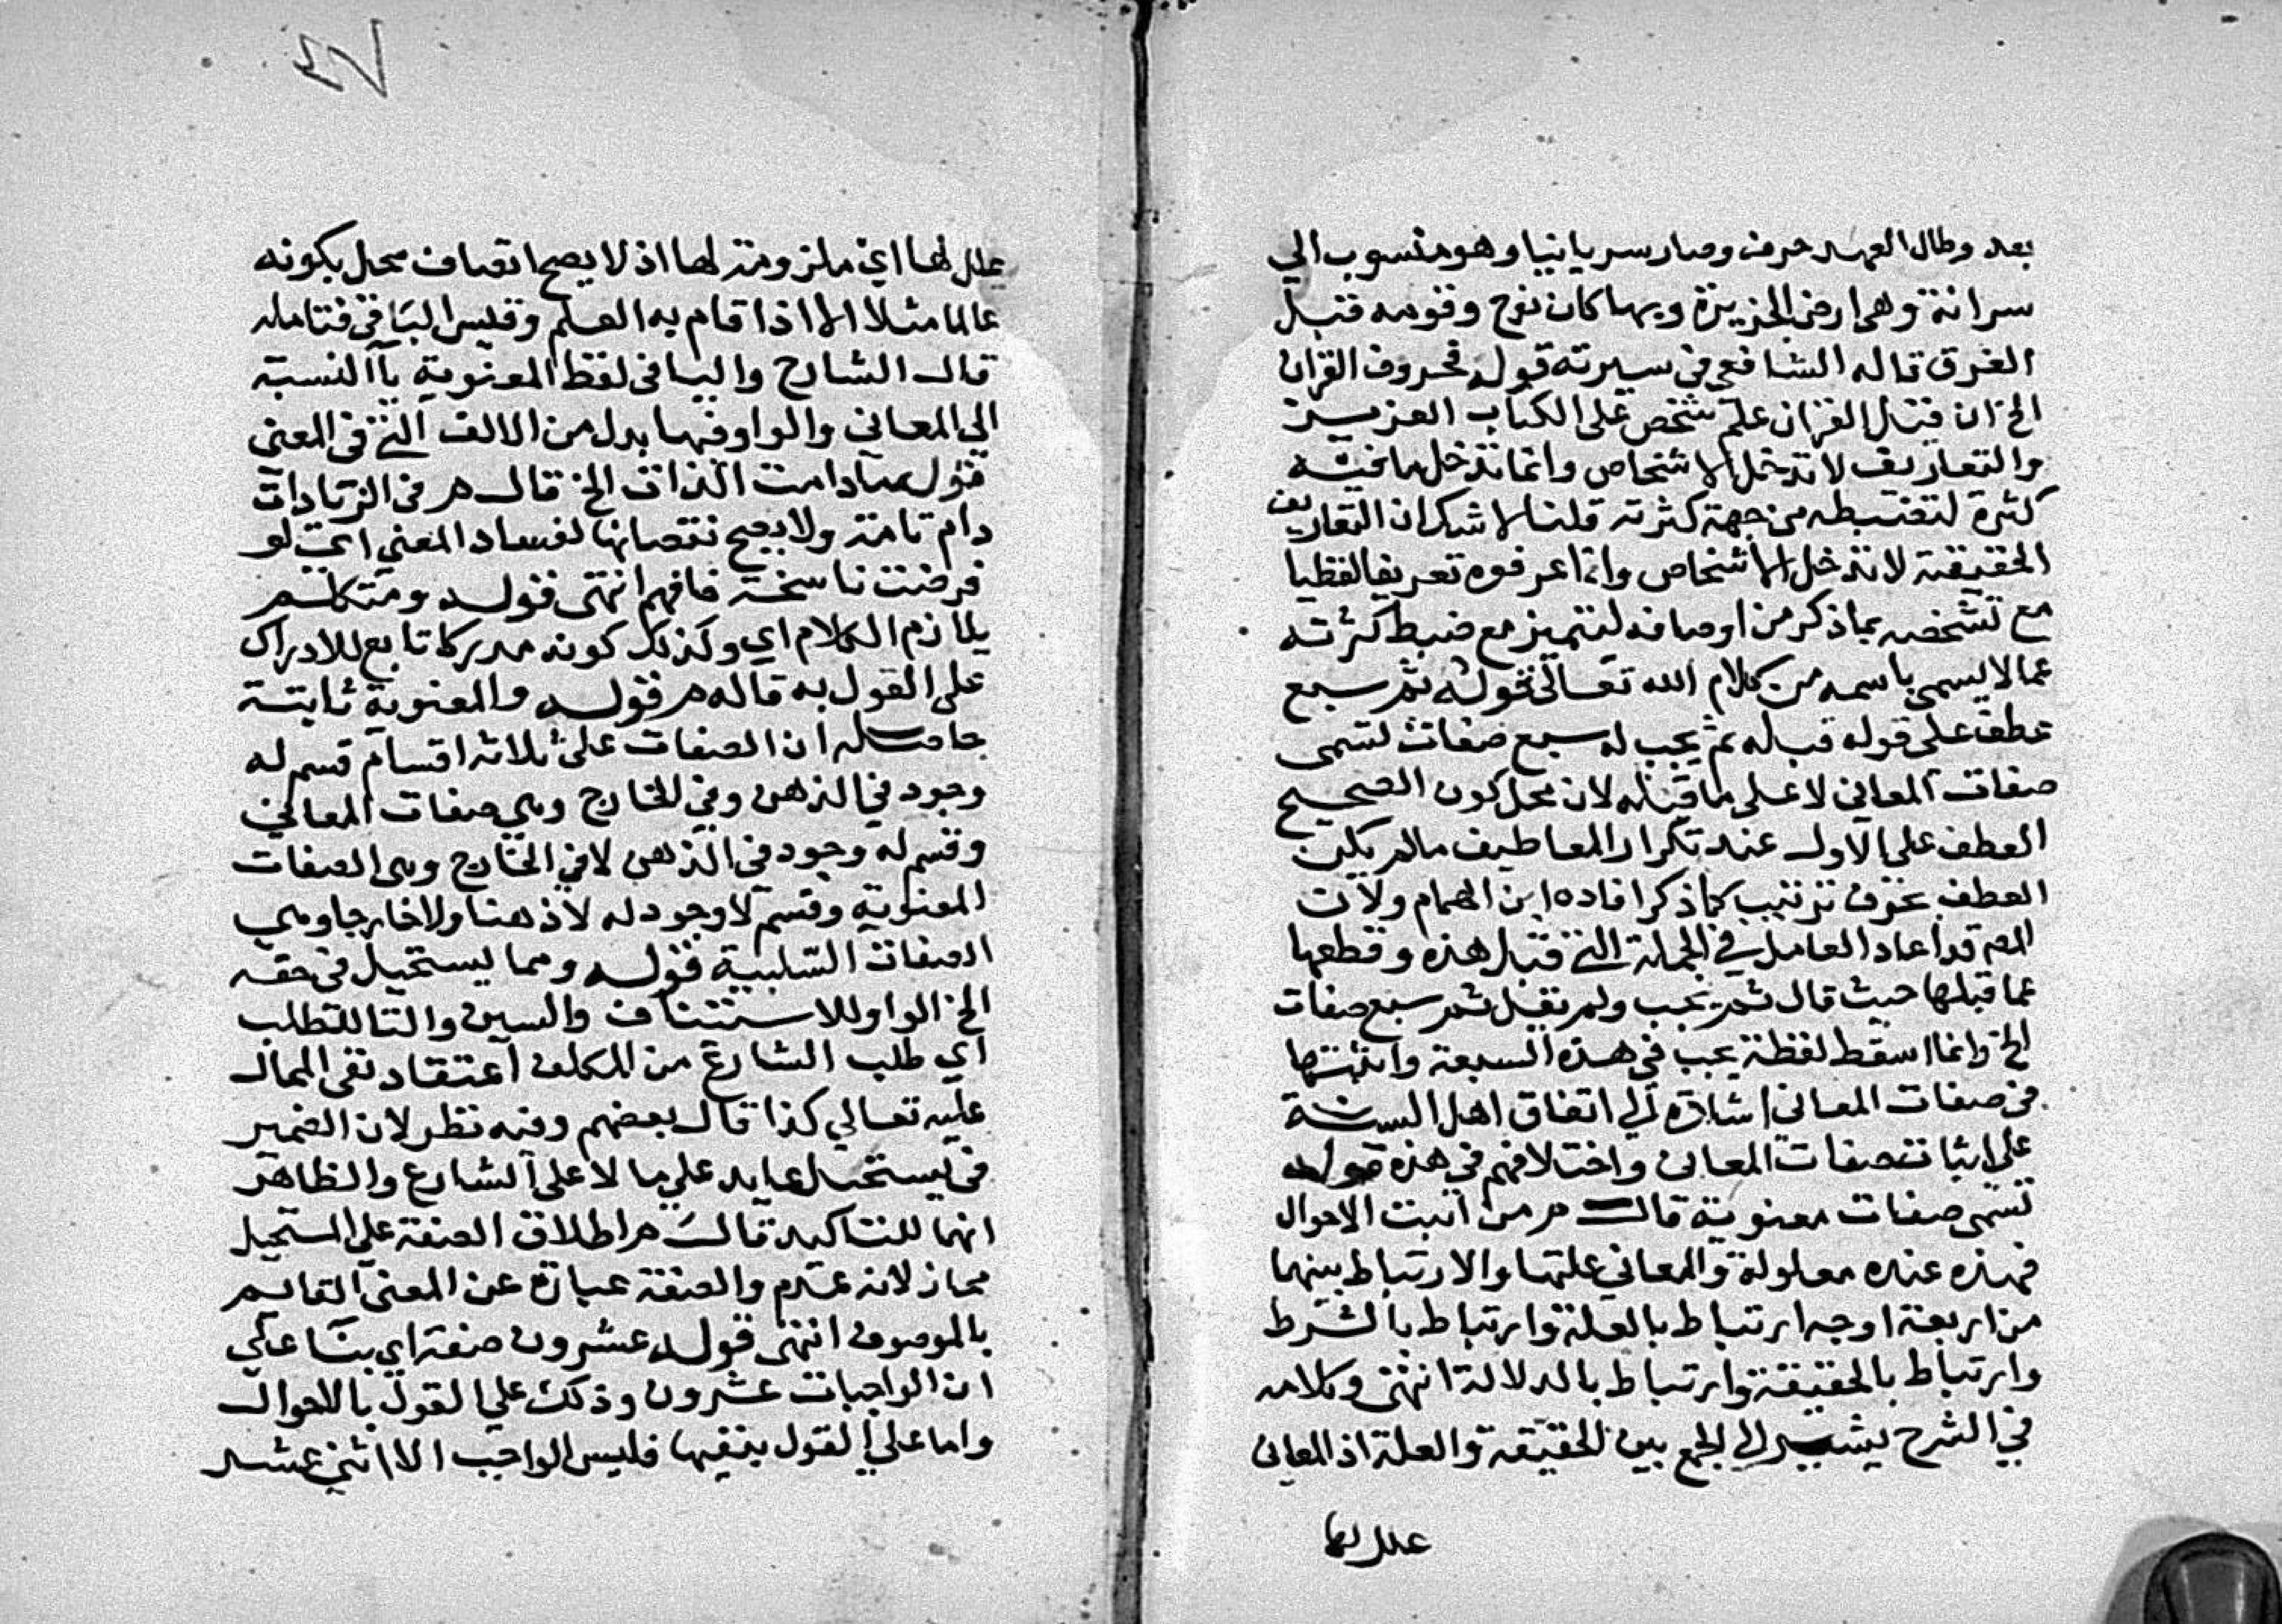 بعد وطال العهد حرف وصار سريانيا وهو منسوب الي
سرانة وهي ارض الجزيرة وبها كان نوح وقومه قبل
الغرق قاله الشافعي في سيرته قوله فحروف القران
الخ ان قيل القران علم شخص على الكتاب العزيز
والتعاريف لا تدخل الاشخاص وانما تدخل ما فيه
كثرة لتضبطه من جهة كثرته قلنا لا شك ان التعاريف
الحقيقية لا تدخل الاشخاص وانما عرفوه تعريفا لفظيا
مع تشخصه بما ذكر من اوصافه ليتميز مع ضبط كثرته
عما لا يسمى باسمه من كلام الله تعالى قوله ثم سبع
عطف على قوله قبله ثم يجب له سبع صفات تسمى
صفات المعاني لا على ما قبله لان محل كون الصحيح
العطف على الاول عند تكرار المعاطيف مالم يكن
العطف بحرف ترتيب كما ذكر افاده ابن الهمام ولان
المص قد اعاد العامل في الجملة التي قبل هذه وقطعها
عما قبلها حيث قال ثم يجب ولم يقل ثم سبع صفات
الخ وانما اسقط لفظة يجب في هذه السبعة واثبتها
في صفات المعاني اشارة الي اتفاق اهل السنة
على اثبات صفات المعاني واختلافهم في هذه قوله
تسمى صفات معنوية قال م ر من اثبت الاحوال
فهذه عنده معلولة والمعاني علتها والارتباط بينهما
من اربعة اوجه ارتباط بالعلة وارتباط بالشرط
وارتباط بالحقيقة وارتباط بالدلالة انتهى وكلامه
في الشرح يشير الي الجمع بين الحقيقة والعلة اذ المعاني
علل لها
٧٤
علل لها اي ملزومة لها اذ لا يصح اتصاف محل بكونه
عالما مثلا الا اذا قام به العلم وقس الباقي فتامله
قال الشارح واليا في لفظ المعنوية يا النسبة
الي المعاني والواو فيها بدل من الالف التي في المعنى
قوله مادامت الذات الخ قال م ر في الزيادات
دام تامة ولا يصح نقصانها لفساد المعنى اي لو
فرضت ناسخة فافهم انتهى قوله ومتكلم
يلازم الكلام اي وكذلك كونه مدركا تابع للادراك
على القول به قاله م ر قوله والمعنوية ثابتة
حاصله ان الصفات على ثلاثة اقسام قسم له
وجود في الذهن وفي الخارج وهي صفات المعاني
وقسم له وجود في الذهن لا في الخارج وهي الصفات
المعنوية وقسم لا وجود له لا ذهنا ولا خارجا وهي
الصفات السلبية قوله ومما يستحيل في حقه
الخ الواو للاستئناف والسين والتا للتطلب
اي طلب الشارع من المكلف اعتقاد نفي المحال
عليه تعالي كذا قال بعضهم وفيه نظر لان الضمير
في يستحيل عايد على ما لا على الشارع والظاهر
انهما للتاكيد قال م ر اطلاق الصفة على المستحيل
مجاز لانه عدم والصفة عبارة عن المعنى القايم
بالموصوف انتهى قوله عشرون صفة اي بنا على
ان الواجبات عشرون وذلك علي القول بالاحوال
واما علي القول بنفيها فليس الواجب الا اثني عشر